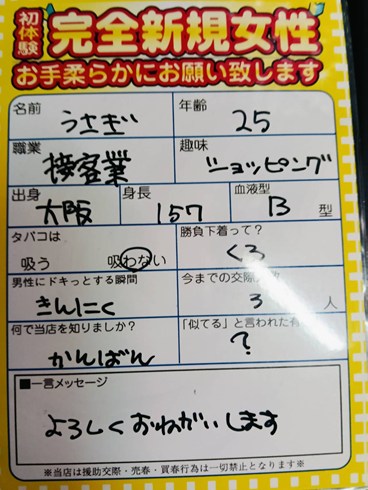 初体験 完全新規女性
お手柔らかにお願い致します
名前 うさぎ 年齢 25
職業 接客業 趣味 ショッピング
出身 大阪 身長 157 血液型 B 型
タバコは 吸う 吸わない 勝負下着って? くろ
男性にドキっとする瞬間 きんにく 今までの交際人数 3 人
何で当店を知りましか? かんばん 「似てる」と言われた有 ?
■一言メッセージ
よろしくおねがいします
※当店は援助交際・売春・買春行為は一切禁止となります※